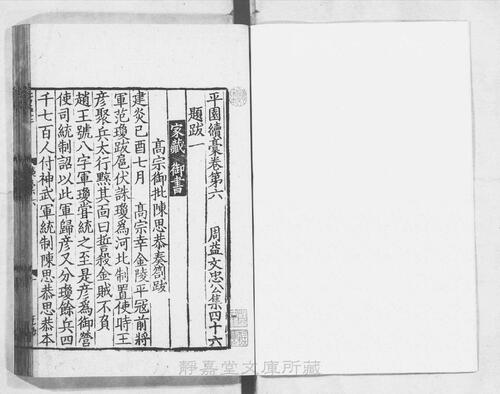 平園續藁卷第六　周益文忠公集四十六
題跋一
家藏御書
高宗御批陳思恭奏劄跋
建炎己酉七月　高宗幸金陵平冦前將
軍范瓊跋扈伏誅瓊爲河北制置使時王
彦聚兵太行黥其面曰誓殺金賊不負
趙王號八字軍瓊甞統之至是彦爲御營
使司統制詔以此軍歸彦又分瓊餘兵四
千七百人付神武軍統制陳思恭思恭本
靜嘉堂文庫所藏